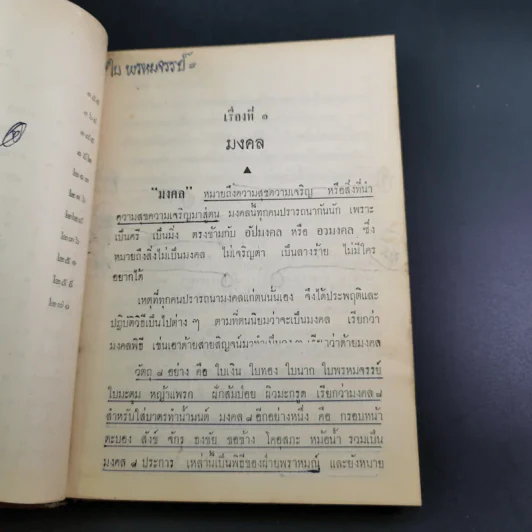 ใบ พรหมจรรย์
เรื่องที่ ๑
มงคล
"มงคล" หมายถึงความสุขความเจริญ หรือสิ่งที่นำ
ความสุขความเจริญมาสู่ตน มงคลนี้ทุกคนปรารถนากันนัก เพราะ
เป็นศรี เป็นมิ่ง ตรงข้ามกับ อัปมงคล หรือ อวมงคล ซึ่ง
หมายถึงสิ่งไม่เป็นมงคล ไม่เจริญตา เป็นลางร้าย ไม่มีใคร
อยากได้
เหตุที่ทุกคนปรารถนามงคลแก่ตนนั้นเอง จึงได้ประพฤติและ
ปฏิบัติวิธีเป็นไปต่าง ๆ ตามที่ตนนิยมว่าจะเป็นมงคล เรียกว่า
มงคลพิธี เช่นเอาด้ายสายสิญจน์มาทำเป็นวง ๆ เรียกว่าด้ายมงคล
วัตถุ ๘ อย่าง คือ ใบเงิน ใบทอง ใบนาก ใบพรหมจรรย์
ใบมะตูม หญ้าแพรก ฝักส้มป่อย ผิวมะกรูด เรียกว่ามงคล ๘
สำหรับใส่บาตรทำน้ำมนต์ มงคล ๘ อีกอย่างหนึ่ง คือ กรอบหน้า
ตะบอง สังข์ จักร ธงชัย ขอช้าง โคอุสภะ หม้อน้ำ รวมเป็น
มงคล ๘ ประการ เหล่านี้เป็นพิธีของฝ่ายพราหมณ์ และยังหมาย